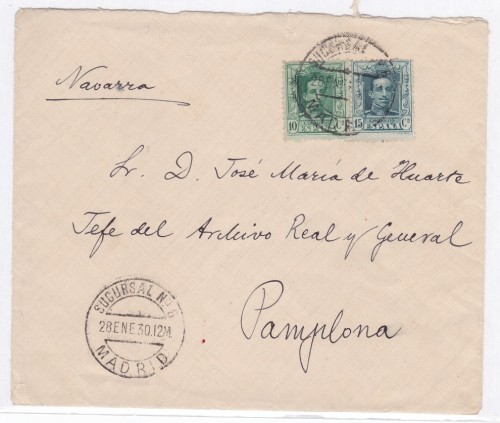 Navarra
SUCURSAL
MADRID
10 ESPAÑA
15 ESPAÑA Cs
Sr. D. José María de Huarte
Jefe del Archivo Real y General
Pamplona
SUCURSAL No 6
28 ENE. 30. 12M
MADRID